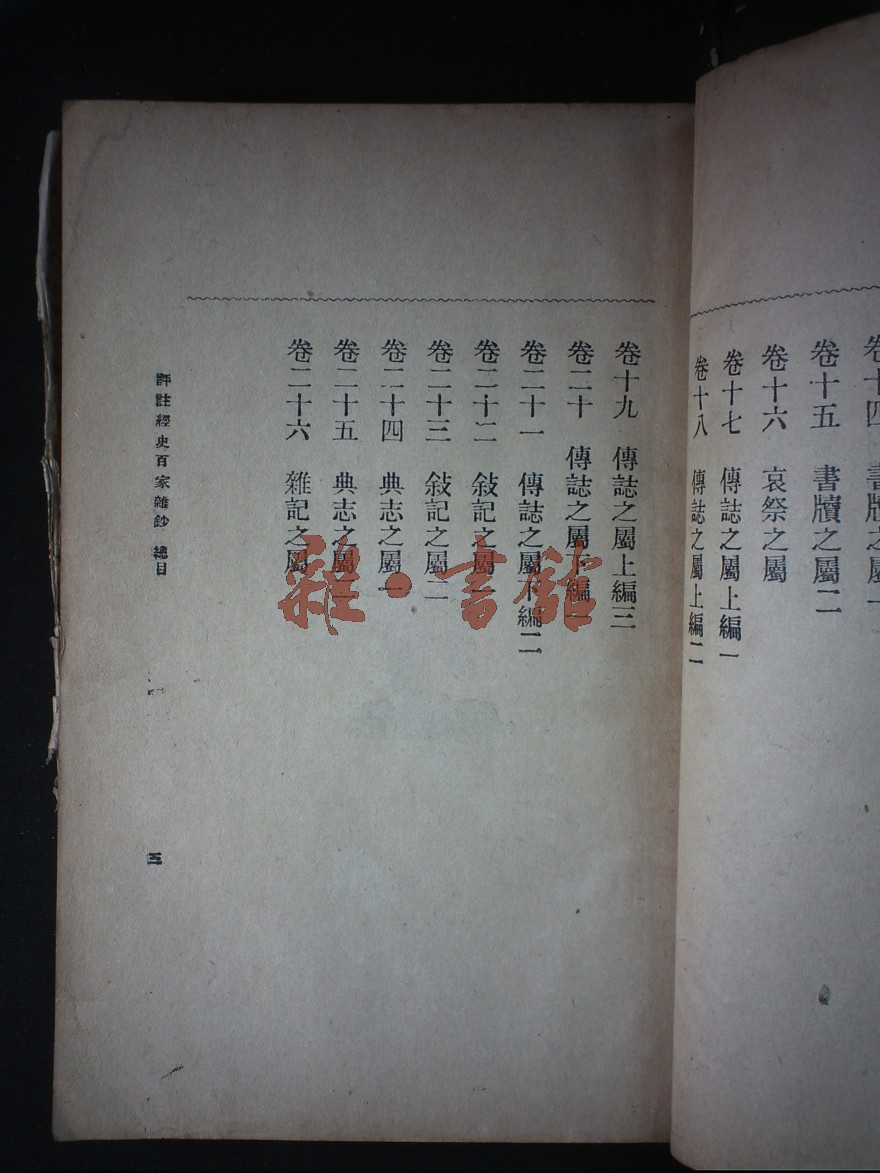 卷十四 書牘之屬一
卷十五 書牘之屬二
卷十六 哀祭之屬
卷十七 傳誌之屬上編一
卷十八 傳誌之屬上編二
卷十九 傳誌之屬上編三
卷二十 傳誌之屬下編一
卷二十一 傳誌之屬下編二
卷二十二 敍記之屬一
卷二十三 敍記之屬二
卷二十四 典志之屬一
卷二十五 典志之屬二
卷二十六 雜記之屬
評註經史百家雜鈔 總目
雜·書館